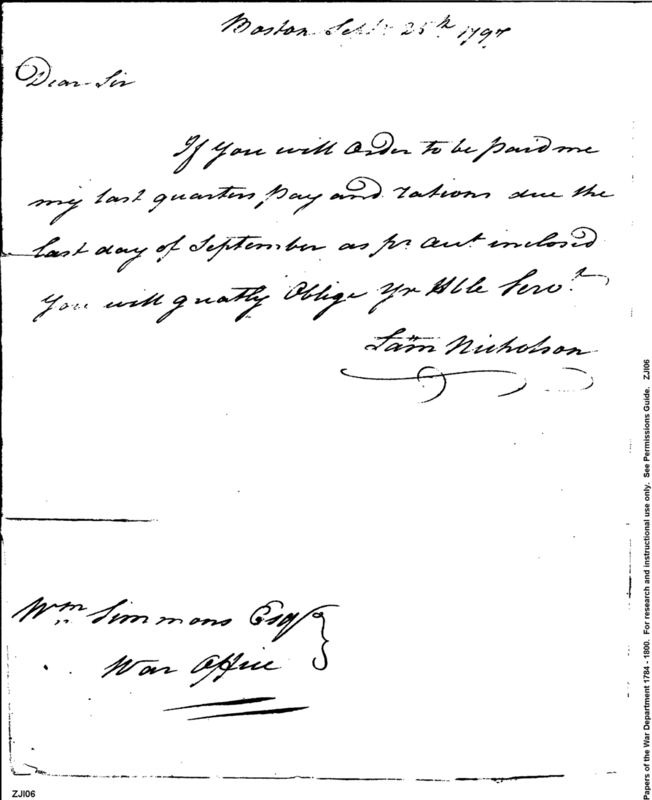 Boston Sept. 25th 1797
Dear Sir
If you will Order to be paid me
my last quarters pay and rations due the
last day of September as pr. Acct inclosed
You will greatly Oblige Yr Hble Servt.
Saml Nicholson
Wm Simmons Esqr
War Office
Papers of the War Department 1784 - 1800. For research and instructional use only. See Permissions Guide. ZJI06
ZJI06